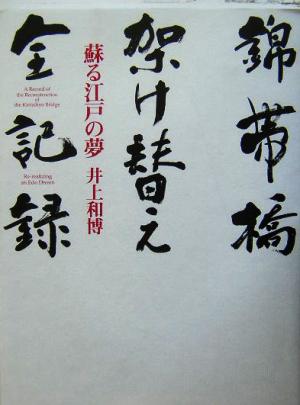 錦帯橋
架け替え
全記録
蘇る江戸の夢 井上和博
A Record of
the Reconstruction
of
the Kintaikyo Bridge
Re-realizing
an Edo Dream